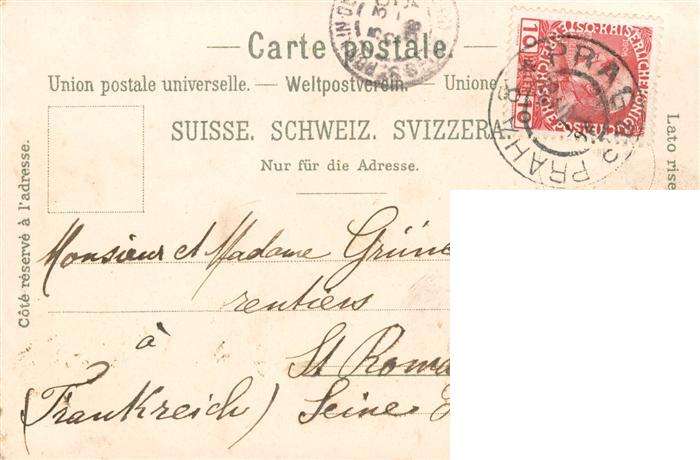 Carte postale.
Union postale universelle. — Weltpostverein. — Unione
SUISSE. SCHWEIZ. SVIZZERA.
Nur für die Adresse.
Côté réservé à l'adresse.
Lato rise
PRAG
PRAHA
10 10
Monsieur et Madame Grüne
rentiers
à St Roma
(Frankreich) Seine